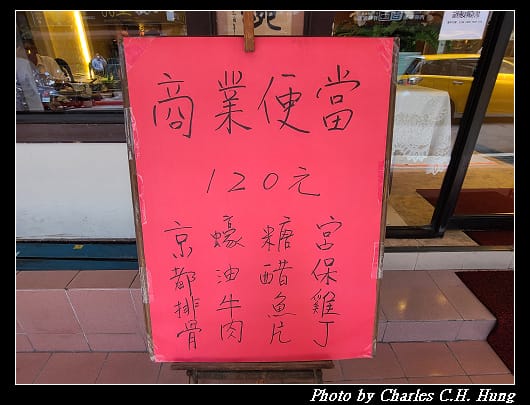 商業便當
120元
宮保雞丁
糖醋魚片
蠔油牛肉
京都排骨
Photo by Charles C.H. Hung